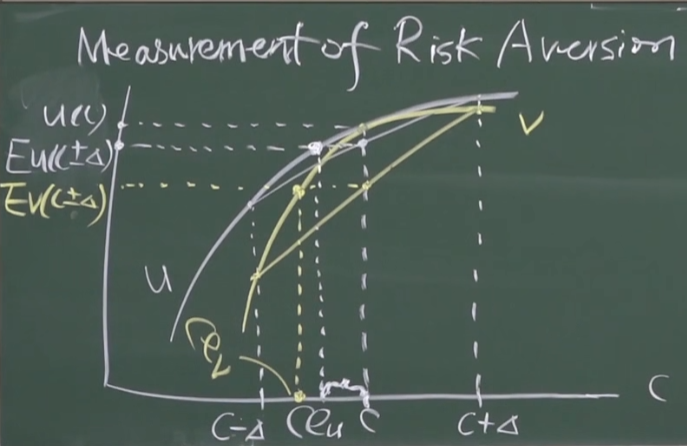 Measurement of Risk Aversion
u(c)
Eu(c±Δ)
Ev(c±Δ)
v
u
Ce_v
c
c-Δ Ce_u c c+Δ